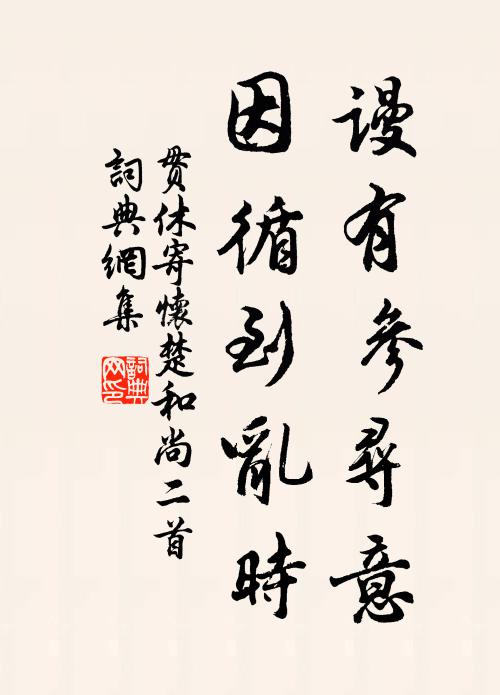 謾有參尋意
因循到亂時
貫休寄懷楚和尚二首
詞典網集
詞典
网印